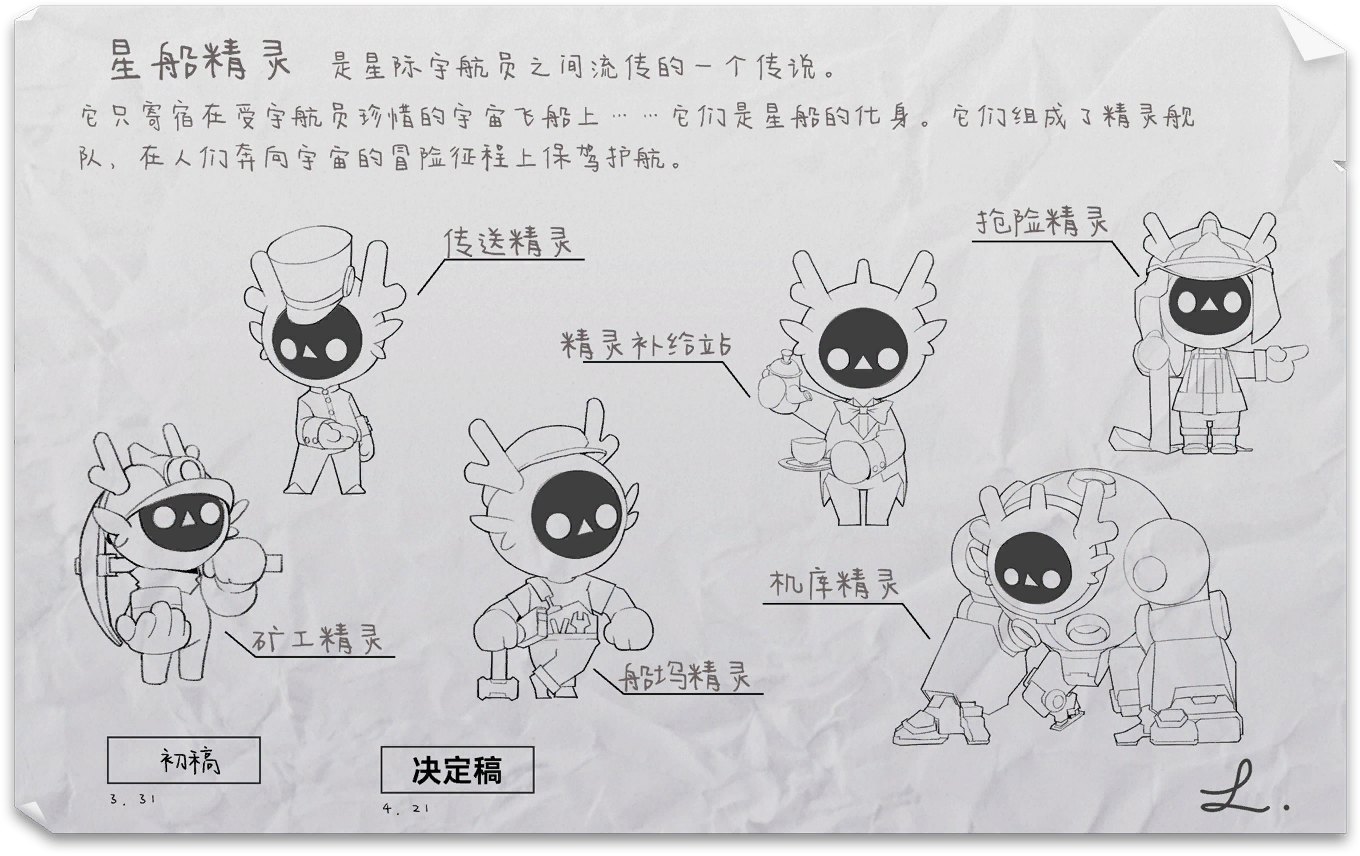 星船精灵 是星际宇航员之间流传的一个传说。
它只寄宿在受宇航员珍惜的宇宙飞船上……它们是星船的化身。它们组成了精灵舰
队，在人们奔向宇宙的冒险征程上保驾护航。
传送精灵
抢险精灵
精灵补给站
机库精灵
矿工精灵
船坞精灵
初稿
3.31
决定稿
4.21
L.